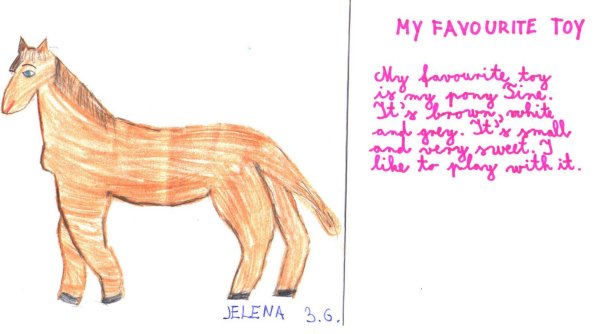 MY FAVOURITE TOY
My favourite toy
is my pony Tine.
It's brown, white
and grey. It's small
and very sweet. I
like to play with it.
JELENA 3.G.